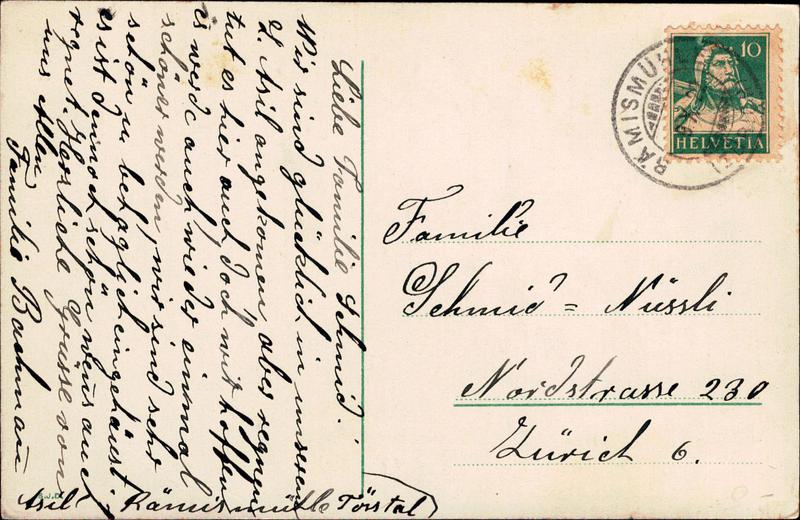 Liebe Familie Schmid!
Wir sind glücklich in unserem
2. Asil angekomen aber regnen
tut es hier auch doch wir hoffen
es werde auch wieder einmal
schöner werden, wir sind sehr
schön u. behaglich eingehäust.
es ist dennoch schön wens auch
regnet. Herzliche Grüsse von
uns Allen
Familie Bachmann
Asil Rämismühle Tösstal
10
HELVETIA
RÄMISMÜHLE
Familie
Schmid = Nüssli
Nordstrasse 230
Zürich 6.